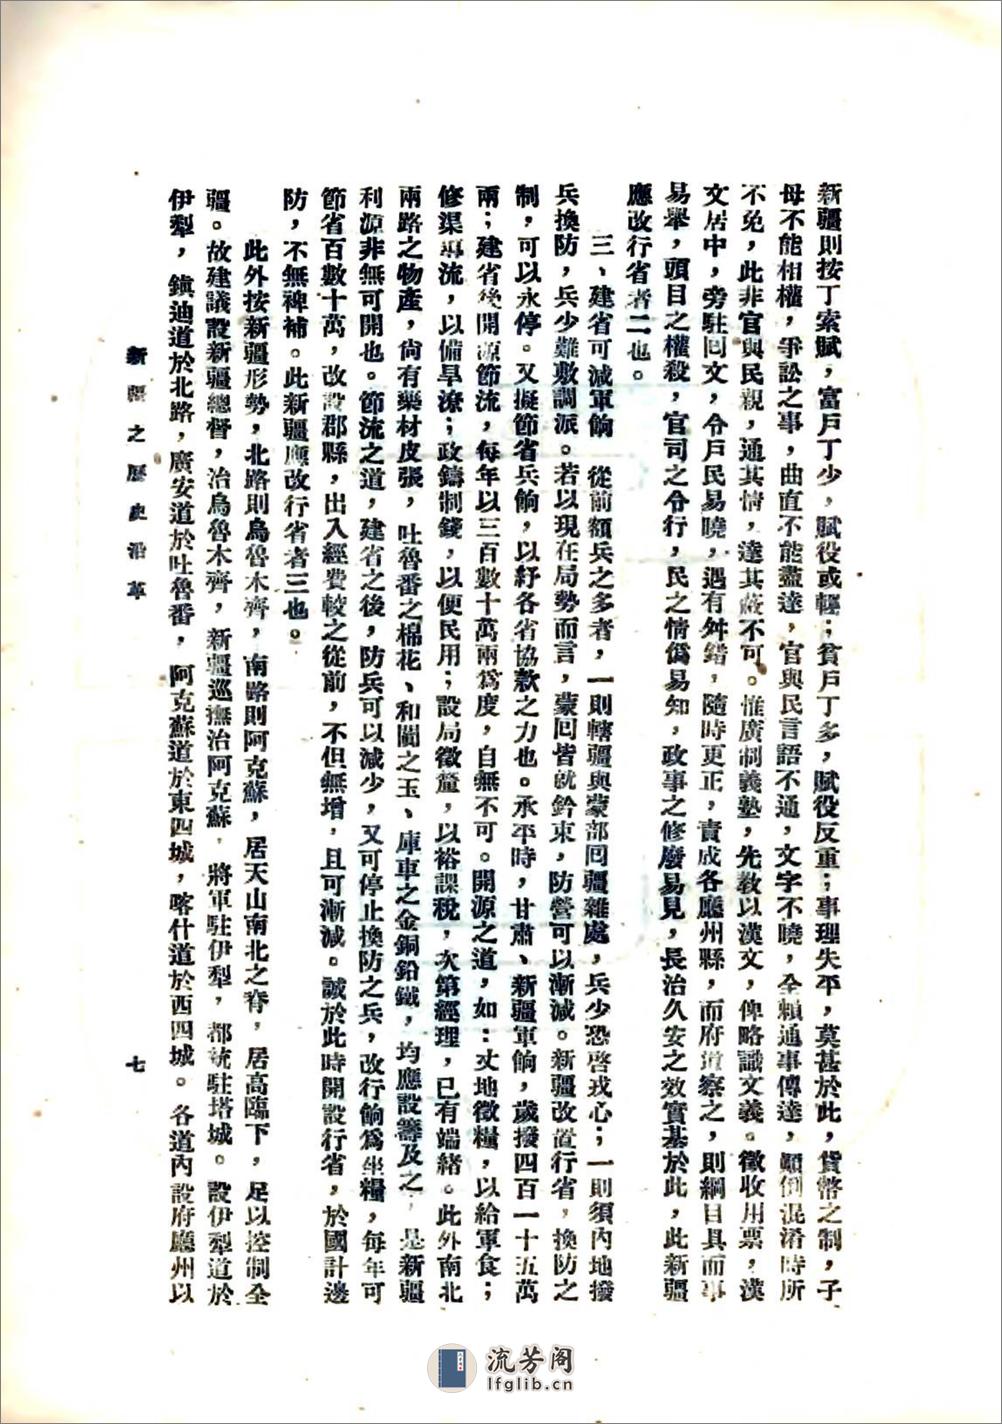 新疆則按丁索賦，富戶丁少，賦役或輕；貧戶丁多，賦役反重；事理失平，莫甚於此，貨幣之制，子
母不能相權，爭訟之事，曲直不能盡達，官與民言語不通，文字不曉，全賴通事傳達，顚倒混淆時所
不免，此非官與民親，通其情，達其蔽不可。惟廣制義塾，先教以漢文，俾略識文義。徵收用票，漢
文居中，旁駐回文，令戶民易曉，遇有舛錯，隨時更正，責成各廳州縣，而府道察之，則綱目具而事
易舉，頭目之權殺，官司之令行，民之情僞易知，政事之修廢易見，長治久安之效實基於此，此新疆
應改行省者二也。
三、建省可減軍餉　從前額兵之多者，一則轄疆與蒙部回疆雜處，兵少恐啓戎心；一則須內地撥
兵換防，兵少難敷調派。若以現在局勢而言，蒙回皆就鈐束，防營可以漸減。新疆改置行省，換防之
制，可以永停。又擬節省兵餉，以紓各省協款之力也。承平時，甘肅、新疆軍餉，歲撥四百一十五萬
兩；建省後開源節流，每年以三百數十萬兩爲度，自無不可。開源之道，如：丈地徵糧，以給軍食；
修渠導流，以備旱潦；政鑄制錢，以便民用；設局徵釐，以裕課稅，次第經理，已有端緒。此外南北
兩路之物產，尙有藥材皮張，吐魯番之棉花、和闐之玉、庫車之金銅鉛鐵，均應設籌及之，是新疆
利源非無可開也。節流之道，建省之後，防兵可以減少，又可停止換防之兵，改行餉爲坐糧，每年可
節省百數十萬，改設郡縣，出入經費較之從前，不但無增，且可漸減。誠於此時開設行省，於國計邊
防，不無裨補。此新疆應改行省者三也。
此外按新疆形勢，北路則烏魯木齊，南路則阿克蘇，居天山南北之脊，居高臨下，足以控制全
疆。故建議設新疆總督，治烏魯木齊，新疆巡撫治阿克蘇，將軍駐伊犁，都統駐塔城。設伊犁道於
伊犁，鎭迪道於北路，廣安道於吐魯番，阿克蘇道於東四城，喀什道於西四城。各道內設府廳州以
新疆之歷史沿革
七
流芳阁
lfglib.cn